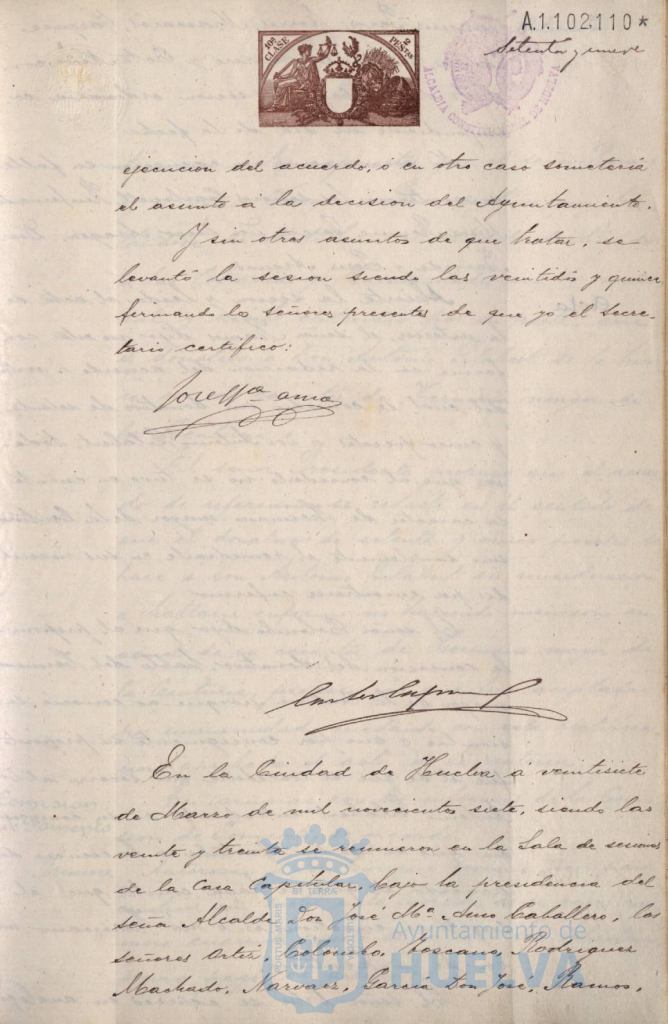 A.1.102.110*
10ª CLASE
2 PESETAS
Setenta y nueve
ALCALDIA CONSTITUCIONAL DE HUELVA
ejecucion del acuerdo, ó en otro caso sometería
el asunto á la decision del Ayuntamiento.
Y sin otros asuntos de que tratar, se
levantó la sesion siendo las veintidós y quince
firmando los señores presentes de que yo el Secre-
tario certifico:
José Mª Amo
En la Ciudad de Huelva á veintisiete
de Marzo de mil novecientos siete, siendo las
veinte y treinta se reunieron en la Sala de sesiones
de la Casa Capitular, bajo la presidencia del
señor Alcalde Don José Mª Amo Caballero, los
señores Ortiz, Colombo, Toscano, Rodriguez
Machado, Narvaez, García Don José, Ramos,
PORTUS MARIS ET TERRAE CUSTODIA
Ayuntamiento de
HUELVA